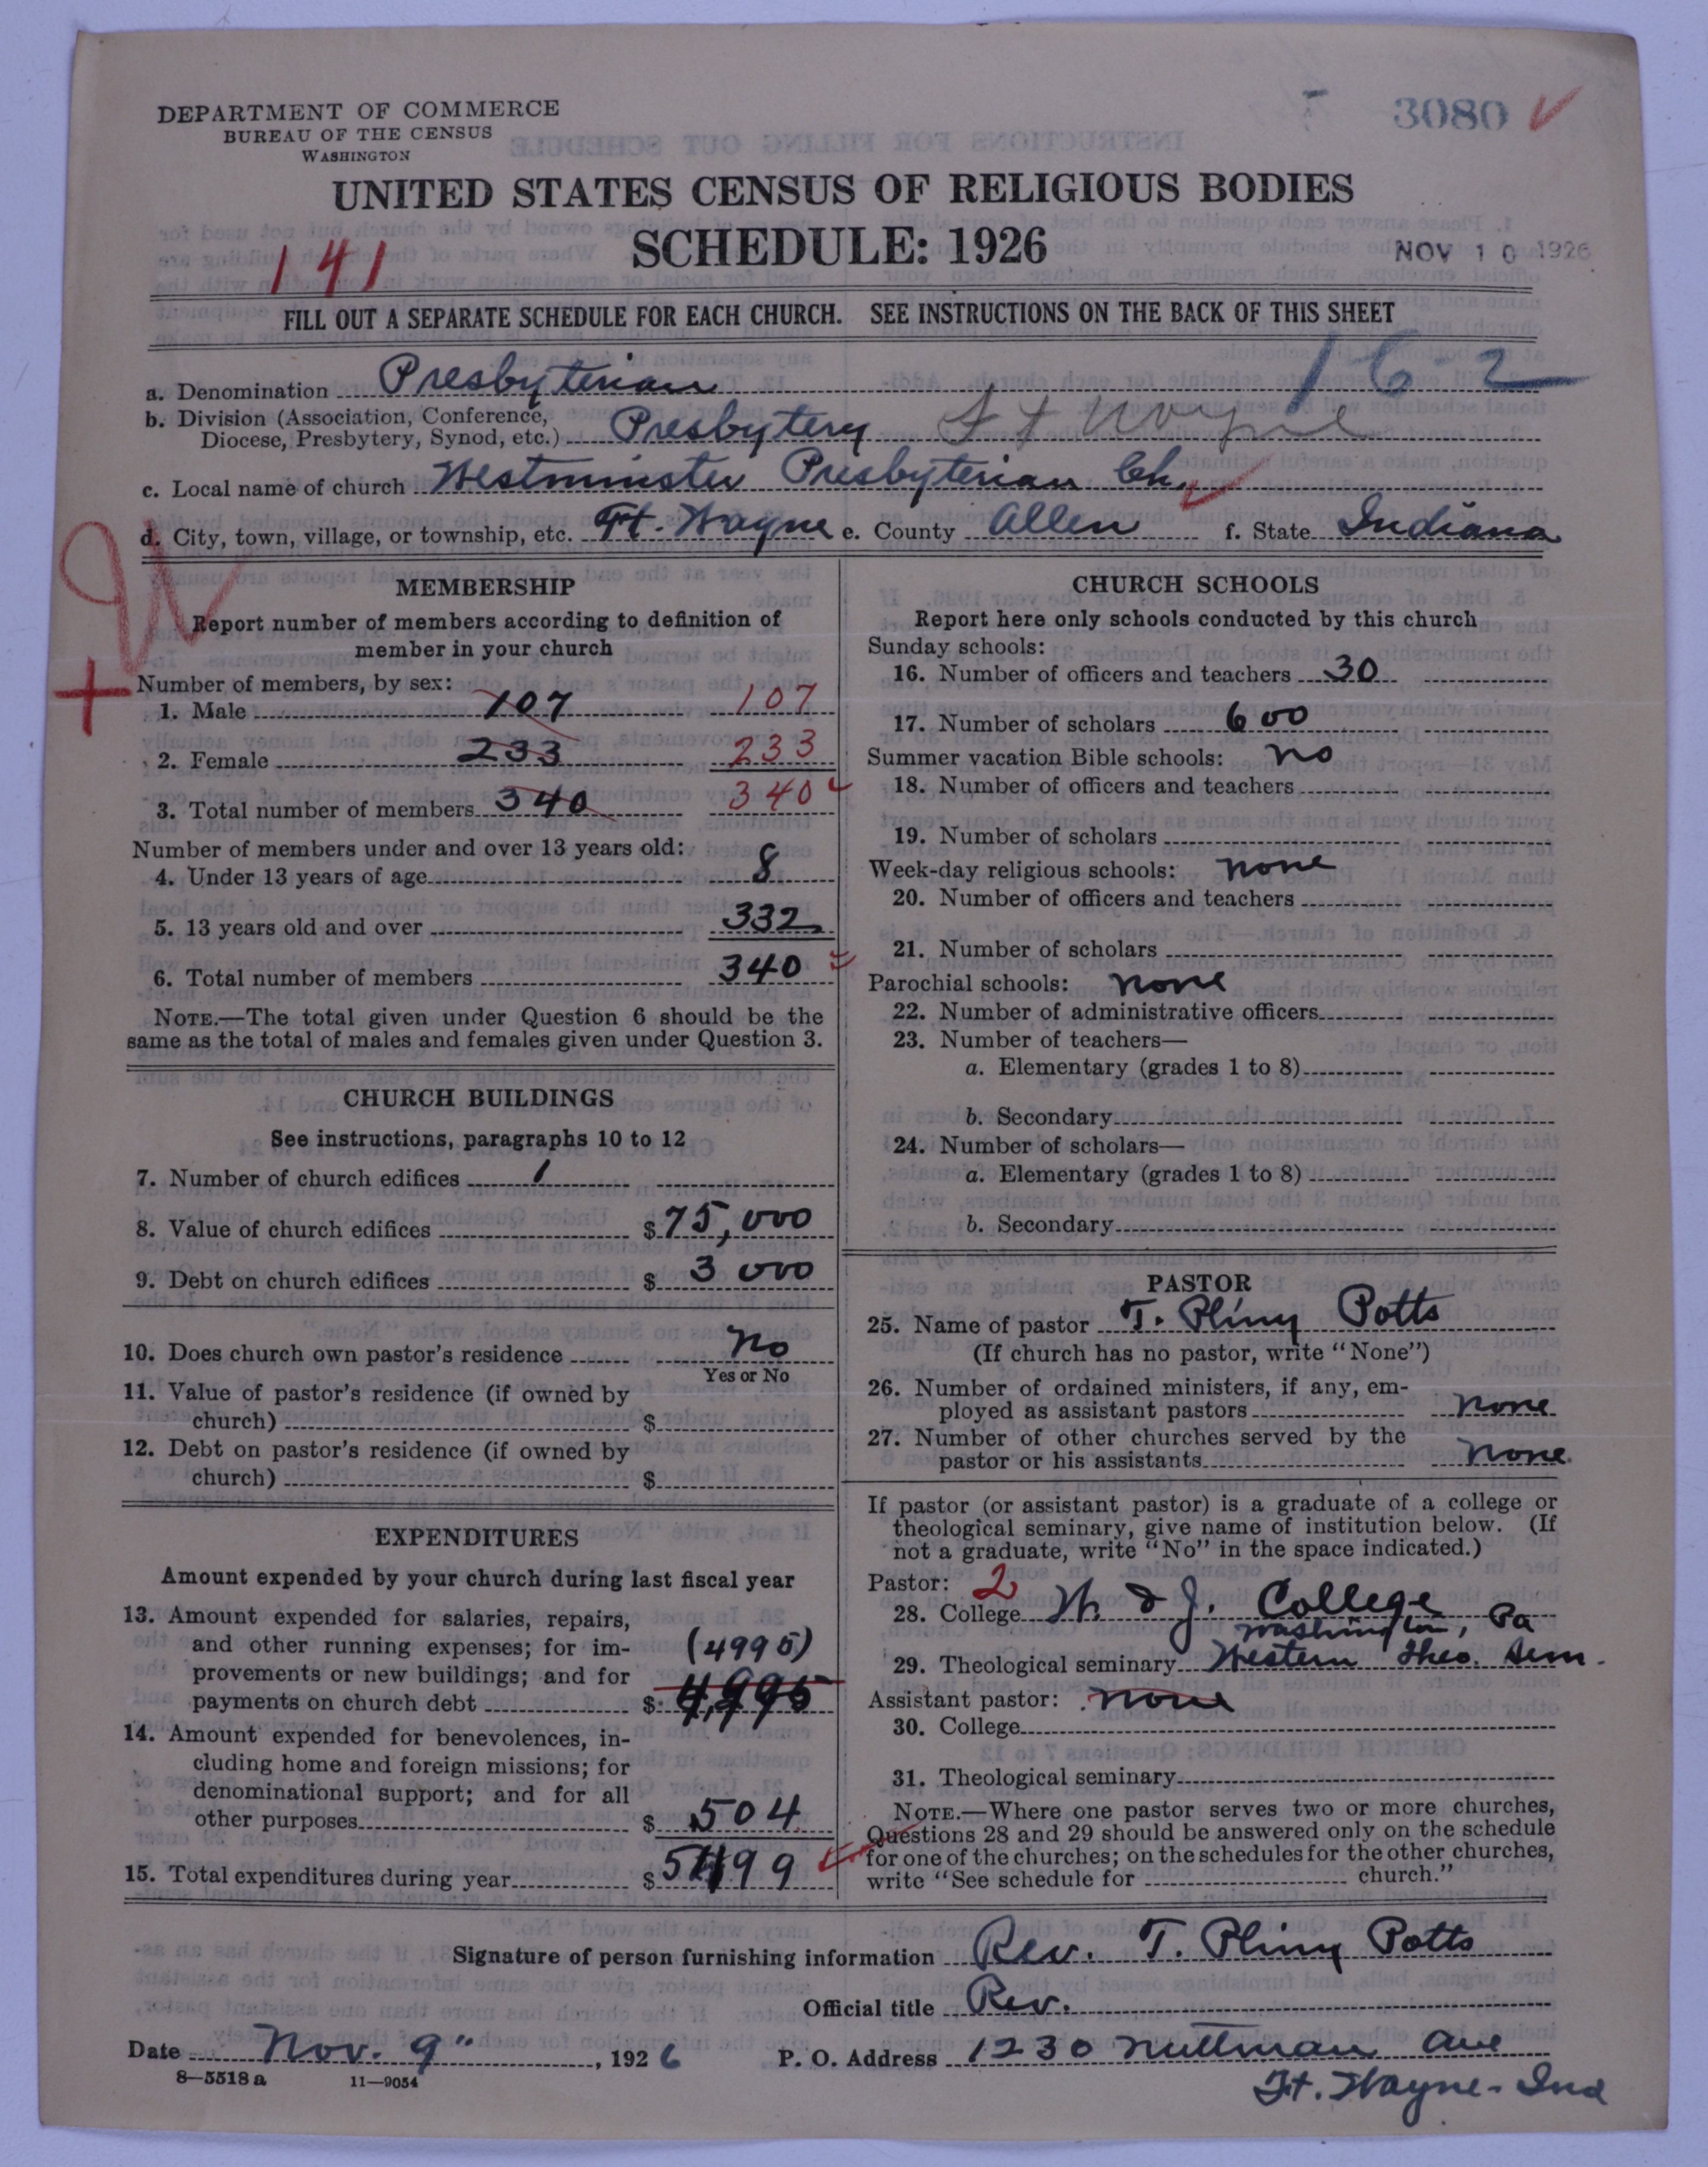 DEPARTMENT OF COMMERCE
BUREAU OF THE CENSUS
WASHINGTON
3080
UNITED STATES CENSUS OF RELIGIOUS BODIES
SCHEDULE: 1926
141
NOV 10 1926
FILL OUT A SEPARATE SCHEDULE FOR EACH CHURCH. SEE INSTRUCTIONS ON THE BACK OF THIS SHEET
1-6-2
a. Denomination Presbyterian
b. Division (Association, Conference,
Diocese, Presbytery, Synod, etc.) Presbytery Ft Wayne
c. Local name of church Westminster Presbyterian Ch.
d. City, town, village, or township, etc. Ft. Wayne e. County Allen f. State Indiana
MEMBERSHIP
Report number of members according to definition of
member in your church
Number of members, by sex:
1. Male 107 107
2. Female 233 233
3. Total number of members 340 340
Number of members under and over 13 years old:
4. Under 13 years of age 8
5. 13 years old and over 332
6. Total number of members 340
NOTE.—The total given under Question 6 should be the
same as the total of males and females given under Question 3.
CHURCH BUILDINGS
See instructions, paragraphs 10 to 12
7. Number of church edifices 1
8. Value of church edifices $75,000
9. Debt on church edifices $ 3 000
10. Does church own pastor's residence No
Yes or No
11. Value of pastor's residence (if owned by
church) $
12. Debt on pastor's residence (if owned by
church) $
EXPENDITURES
Amount expended by your church during last fiscal year
13. Amount expended for salaries, repairs,
and other running expenses; for im-
provements or new buildings; and for
payments on church debt $ (4995)
4,995
14. Amount expended for benevolences, in-
cluding home and foreign missions; for
denominational support; and for all
other purposes $ 504
15. Total expenditures during year $ 5499
CHURCH SCHOOLS
Report here only schools conducted by this church
Sunday schools:
16. Number of officers and teachers 30
17. Number of scholars 600
Summer vacation Bible schools: No
18. Number of officers and teachers
19. Number of scholars
Week-day religious schools: None
20. Number of officers and teachers
21. Number of scholars
Parochial schools: None
22. Number of administrative officers
23. Number of teachers—
a. Elementary (grades 1 to 8)
b. Secondary
24. Number of scholars—
a. Elementary (grades 1 to 8)
b. Secondary
PASTOR
25. Name of pastor T. Pliny Potts
(If church has no pastor, write "None")
26. Number of ordained ministers, if any, em-
ployed as assistant pastors None
27. Number of other churches served by the
pastor or his assistants None.
If pastor (or assistant pastor) is a graduate of a college or
theological seminary, give name of institution below. (If
not a graduate, write "No" in the space indicated.)
Pastor: 2
28. College W. & J. College
Washington, Pa
29. Theological seminary Western Theo. Sem.
Assistant pastor: None
30. College
31. Theological seminary
NOTE.—Where one pastor serves two or more churches,
Questions 28 and 29 should be answered only on the schedule
for one of the churches; on the schedules for the other churches,
write "See schedule for church."
Signature of person furnishing information Rev. T. Pliny Potts
Official title Rev.
Date Nov. 9", 1926 P. O. Address 1230 Nuttman Ave
8—5518a 11—9054
Ft. Wayne - Ind